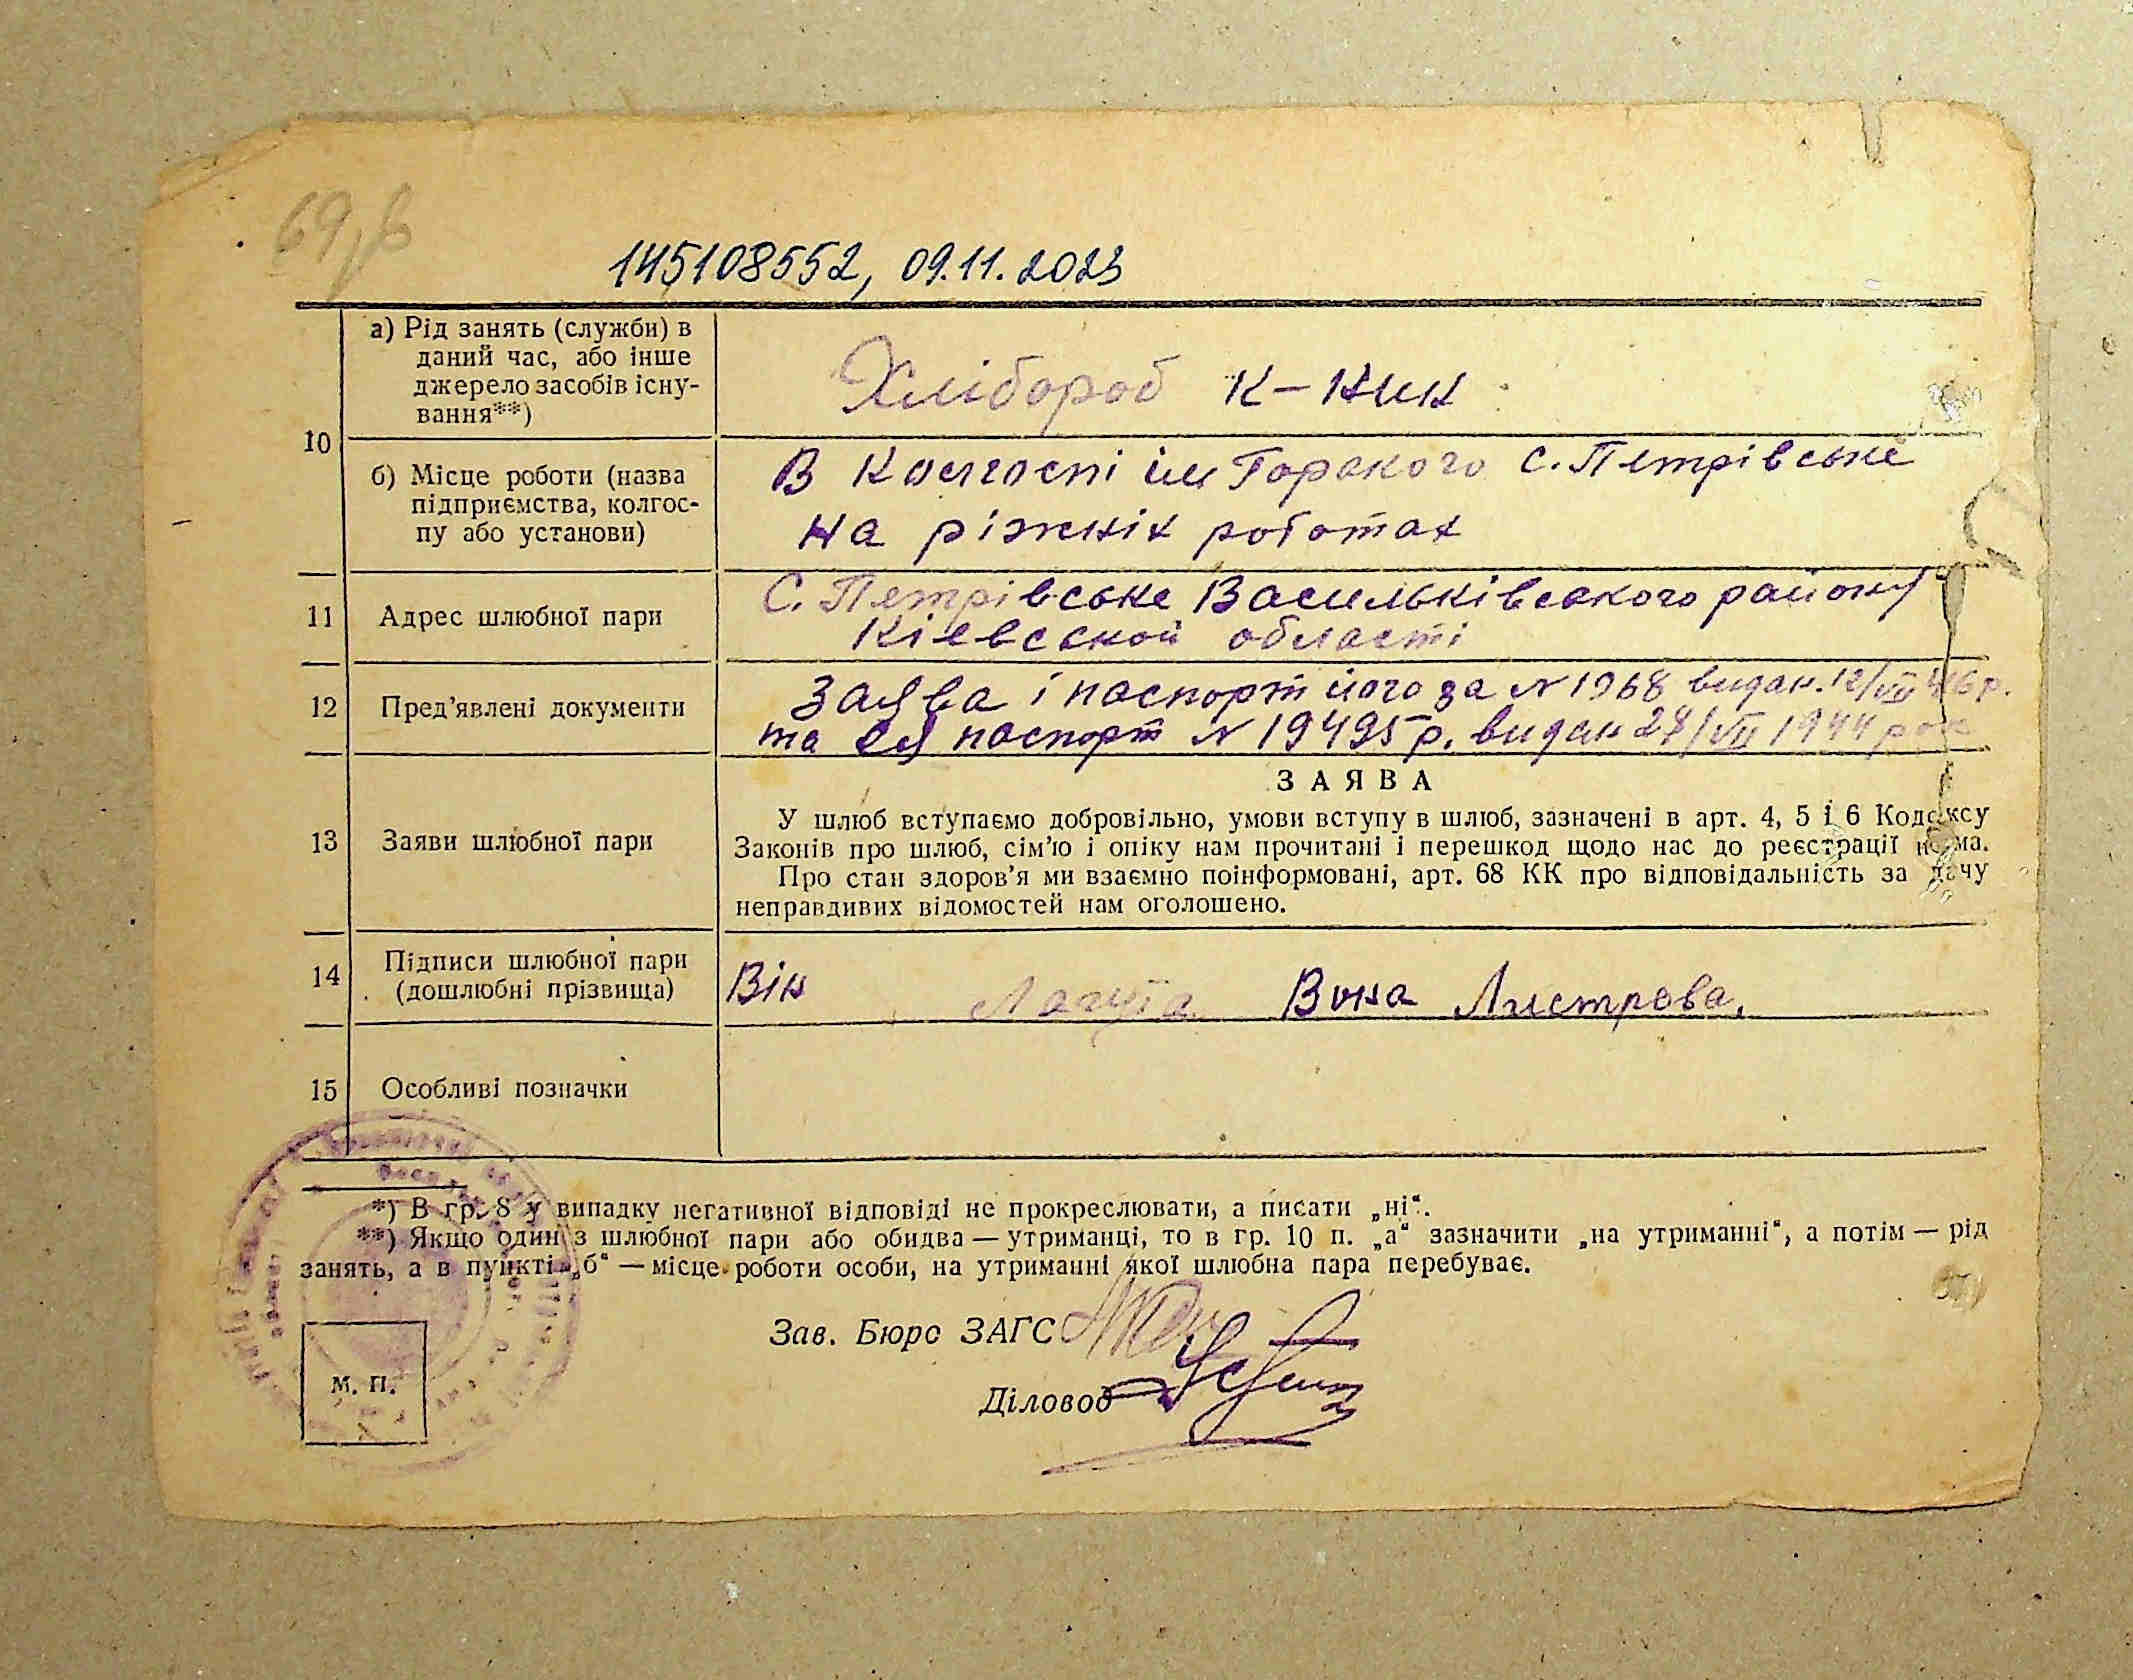 145108552, 09.11.2023
10
а) Рід занять (служби) в
даний час, або інше
джерело засобів існу-
вання**)
Хлібороб к-кик
б) Місце роботи (назва
підприємства, колгос-
пу або установи)
В Колгоспі ім Горького с. Петрівське
на ріжніх роботах
11
Адрес шлюбної пари
С. Петрівське Васильківського району
Кіевської області
12
Пред’явлені документи
Заява і паспорт його за № 1968 видан. 12/VIII 46 р.
та ея паспорт № 19495 р. видан 27/VII 1944 рок
13
Заяви шлюбної пари
ЗАЯВА
У шлюб вступаємо добровільно, умови вступу в шлюб, зазначені в арт. 4, 5 і 6 Кодексу
Законів про шлюб, сім’ю і опіку нам прочитані і перешкод щодо нас до реєстрації нема.
Про стан здоров’я ми взаємно поінформовані, арт. 68 КК про відповідальність за дачу
неправдивих відомостей нам оголошено.
14
Підписи шлюбної пари
(дошлюбні прізвища)
Він Лагута Вона Листрова.
15
Особливі позначки
*) В гр. 8 у випадку негативної відповіді не прокреслювати, а писати „ні“.
**) Якщо один з шлюбної пари або обидва — утриманці, то в гр. 10 п. „а“ зазначити „на утриманні“, а потім — рід
занять, а в пункті „б“ — місце роботи особи, на утриманні якої шлюбна пара перебуває.
Зав. Бюро ЗАГС
Діловод
М. П.